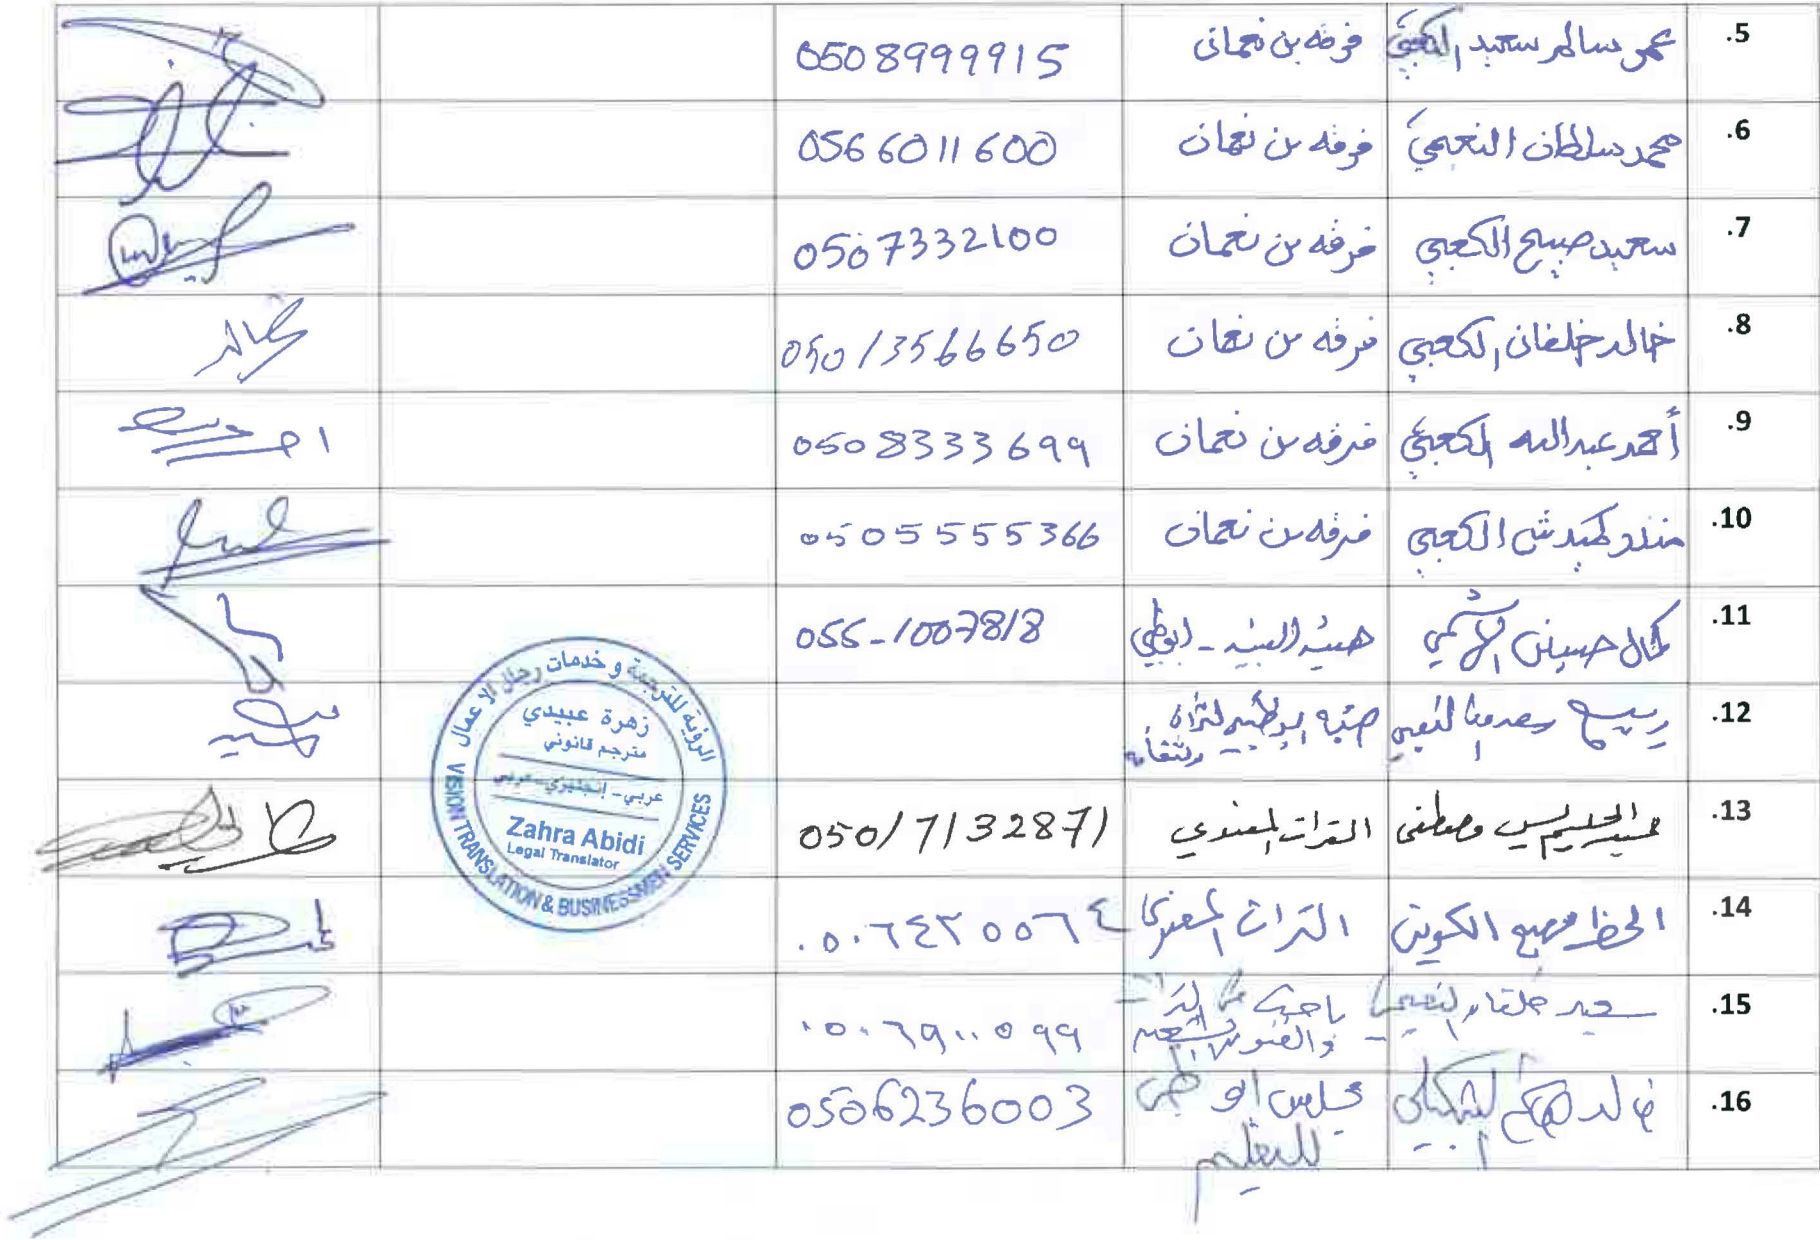 5. عمر سالم سعيد الكعبي فرقه بن نعمان 0508999915
6. محمد سلطان النعيمي فرقه بن نعمان 0566011600
7. سعيد صبيح الكعبي فرقه بن نعمان 0507332100
8. خالد خلفان الكعبي فرقه بن نعمان 050/3566650
9. أحمد عبدالله الكعبي فرقه بن نعمان 0508333699
10. الكعبي فرقه بن نعمان 0505555366
11. كمال حسين هيئة البيئه - ابوظبي 055-1007818
12. ربيع
13. عبدالحليم مصطفى التراث المعنوي 050/7132871
14. الحظ مصبح الكويتي التراث المعنوي ٠٥٠٦٤٢٥٥٦٤
15. سعيد خلفان النعيمي باحث ٠٥٠٦٩١١٥٩٩
16. خالد مجلس ابوظبي 0506236003
للتعليم
الرؤية للترجمة و خدمات رجال الاعمال
زهرة عبيدي
مترجم قانوني
عربي - إنجليزي - عربي
Zahra Abidi
Legal Translator
VISION TRANSLATION & BUSINESSMEN SERVICES